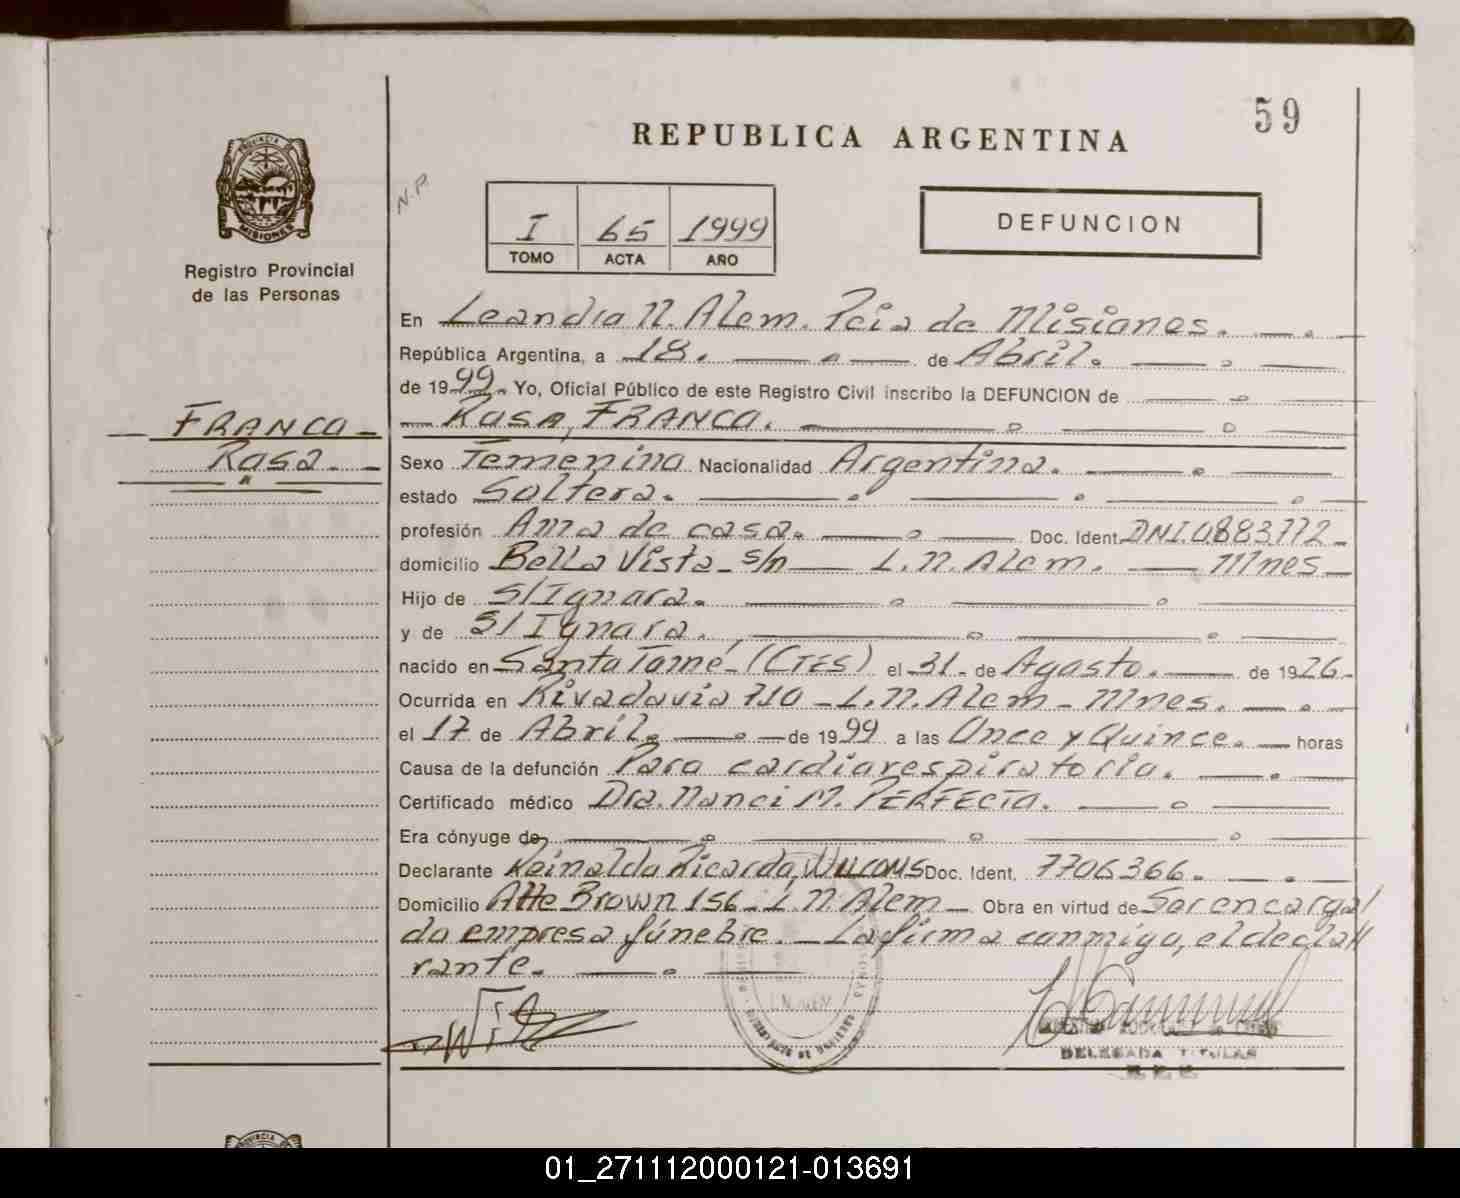 59
REPUBLICA ARGENTINA
PROVINCIA DE
MISIONES
Registro Provincial
de las Personas
N.P.
I 65 1999
TOMO ACTA AÑO
DEFUNCION
En Leandro N. Alem. Pcia de Misiones.
República Argentina, a 18. de Abril.
de 1999. Yo, Oficial Público de este Registro Civil inscribo la DEFUNCION de
Rosa, FRANCO.
FRANCO
Rosa.
Sexo Femenino Nacionalidad Argentina.
estado Soltera.
profesión Ama de casa. Doc. Ident. DNI.0883772
domicilio Bella Vista - s/n L.N. Alem. Mnes
Hijo de S/Ignora.
y de S/Ignora.
nacido en Santo Tomé (CTES) el 31 de Agosto. de 1926
Ocurrida en Rivadavia 710 - L.N. Alem - Mnes.
el 17 de Abril. de 1999 a las Once y Quince. horas
Causa de la defunción Paro cardiorespiratorio.
Certificado médico Dra. Nanci M. PERFECTO.
Era cónyuge de
Declarante Reinaldo Ricardo, Doc. Ident. 7706366.
Domicilio Alte Brown 156 - L.N. Alem Obra en virtud de Ser encarga
do empresa fúnebre. - La firma conmigo, el decla
rante.
DELEGADA TITULAR
01_271112000121-013691